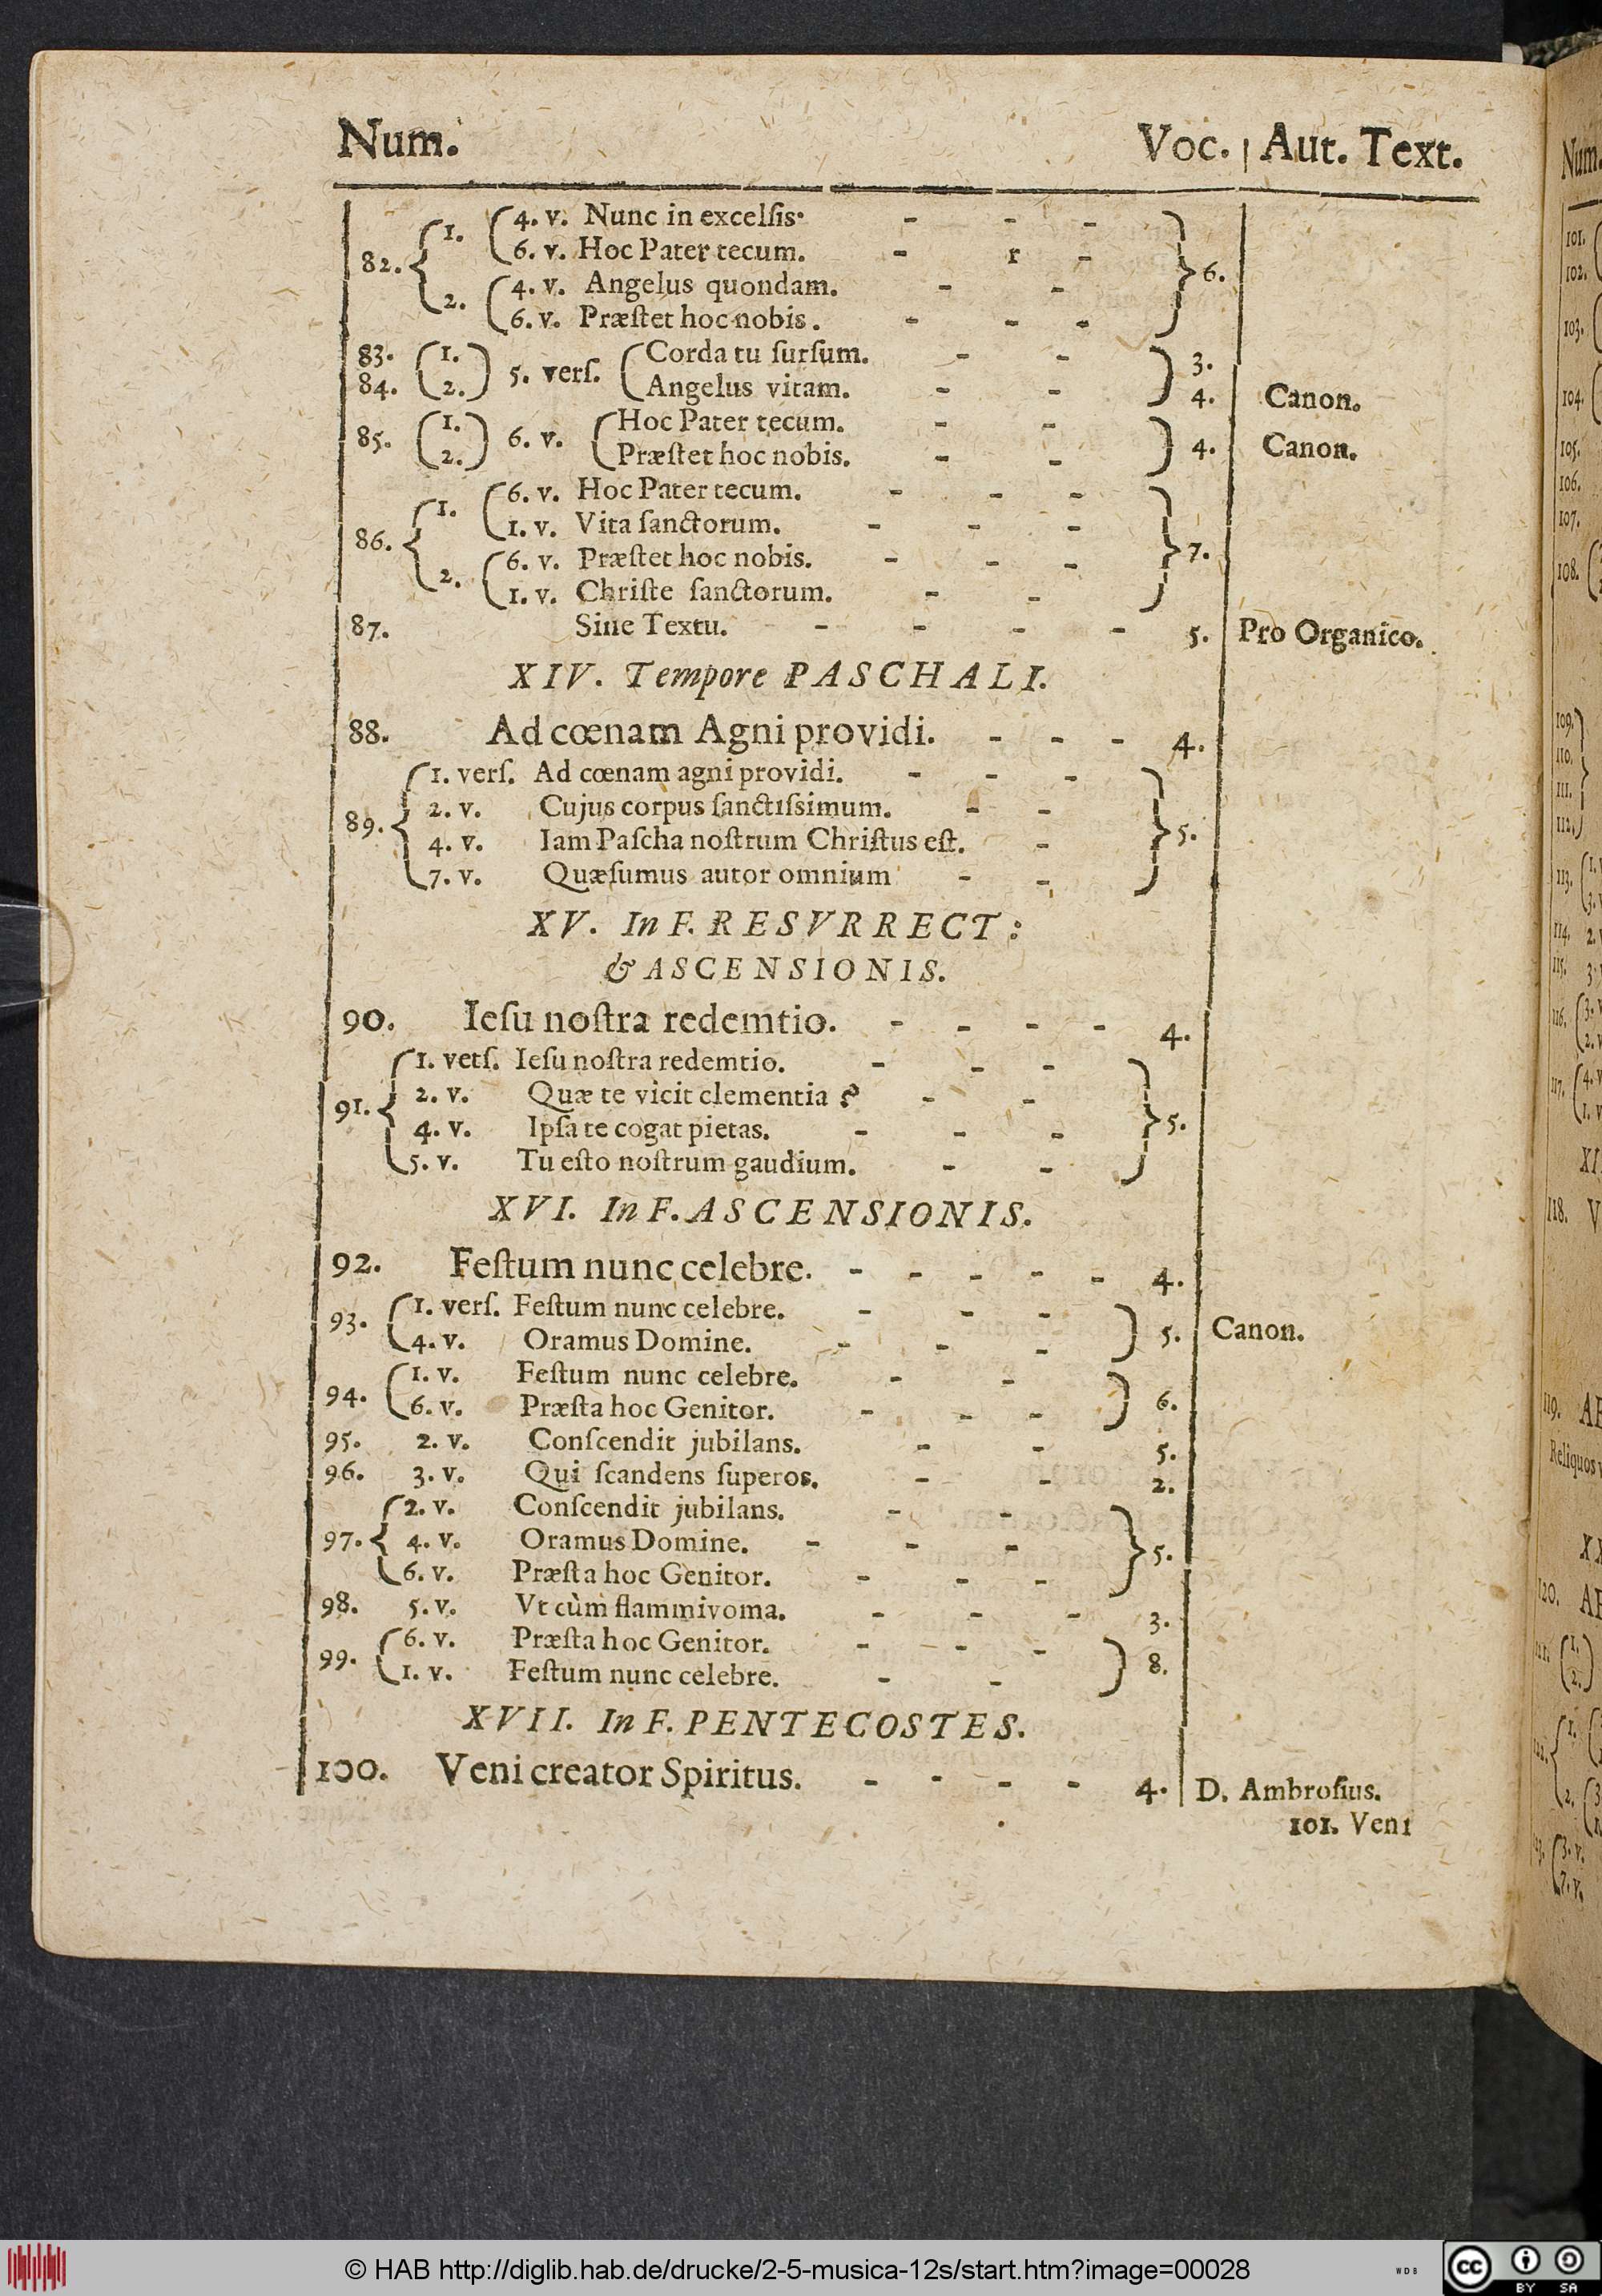 Num. Voc. | Aut. Text.
1. 4. v. Nunc in excelſis. - - -
82. 6. v. Hoc Pater tecum. - r - 6.
2. 4. v. Angelus quondam. - -
6. v. Præſtet hoc nobis. - - -
83. 1. 5. verſ. Corda tu ſurſum. - - 3.
84. 2. Angelus vitam. - - 4. Canon.
85. 1. 6. v. Hoc Pater tecum. - - 4. Canon.
2. Præſtet hoc nobis. - -
1. 6. v. Hoc Pater tecum. - - -
86. 1. v. Vita ſanctorum. - - - 7.
2. 6. v. Præſtet hoc nobis. - - -
1. v. Chriſte ſanctorum. - -
87. Sine Textu. - - - - 5. Pro Organico.
XIV. Tempore PASCHALI.
88. Ad cœnam Agni providi. - - - 4.
1. verſ. Ad cœnam agni providi. - - -
89. 2. v. Cujus corpus ſanctiſsimum. - - 5.
4. v. Iam Paſcha noſtrum Chriſtus eſt. -
7. v. Quæſumus autor omnium - -
XV. In F. RESVRRECT:
& ASCENSIONIS.
90. Ieſu noſtra redemtio. - - - - 4.
1. vetſ. Ieſu noſtra redemtio. - - -
91. 2. v. Quæ te vicit clementia? - - 5.
4. v. Ipſa te cogat pietas. - - -
5. v. Tu eſto noſtrum gaudium. - -
XVI. In F. ASCENSIONIS.
92. Feſtum nunc celebre. - - - - - 4.
93. 1. verſ. Feſtum nunc celebre. - - - 5. Canon.
4. v. Oramus Domine. - - -
94. 1. v. Feſtum nunc celebre. - - 6.
6. v. Præſta hoc Genitor. - - -
95. 2. v. Conſcendit jubilans. - - 5.
96. 3. v. Qui ſcandens ſuperos. - - 2.
2. v. Conſcendit jubilans. - -
97. 4. v. Oramus Domine. - - - 5.
6. v. Præſta hoc Genitor. - - -
98. 5. v. Vt cùm flammivoma. - - - 3.
99. 6. v. Præſta hoc Genitor. - - - 8.
1. v. Feſtum nunc celebre. - -
XVII. In F. PENTECOSTES.
100. Veni creator Spiritus. - - - - 4. D. Ambroſius.
101. Veni
Num.
101.
102.
103.
104.
105.
106.
107.
108.
109.
110.
111.
112.
113. 1.
3.
114. 2.
115. 3.
116. 3. v
2. v
117. 4. v
1. v
XI
118. V
119. AE
Reliquos v
XX
120. AE
1.
2.
1.
2.
3. v.
7. v.
© HAB http://diglib.hab.de/drucke/2-5-musica-12s/start.htm?image=00028
WDB
cc BY SA